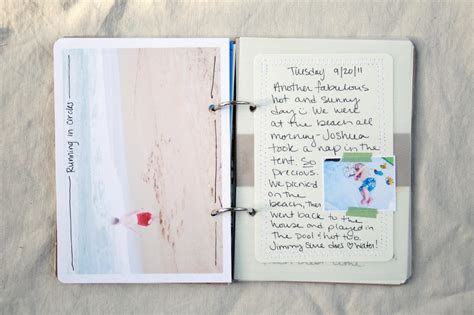 Running in circles
Tuesday 9/20/11
Another fabulous
hot and sunny
day! We were
at the beach all
morning-Joshua
took a nap in the
tent. So
precious.
We picnied
on the
beach, then
went back to the
house and played in
the pool & hot tub.
Jimmy sure does ♡ water!